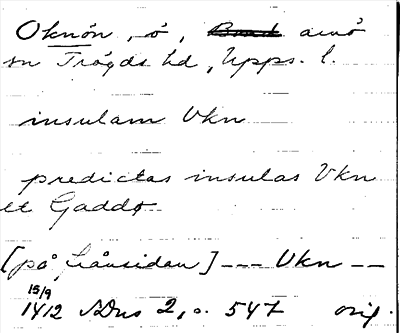 Oknön, ö,
sn Trögds hd, Upps. l.
insulam Vkn
predictas insulas Vkn
et Gaddø
[på frånsidan] --- Vkn --
15/9
1412 SDns 2, s. 547 orig.